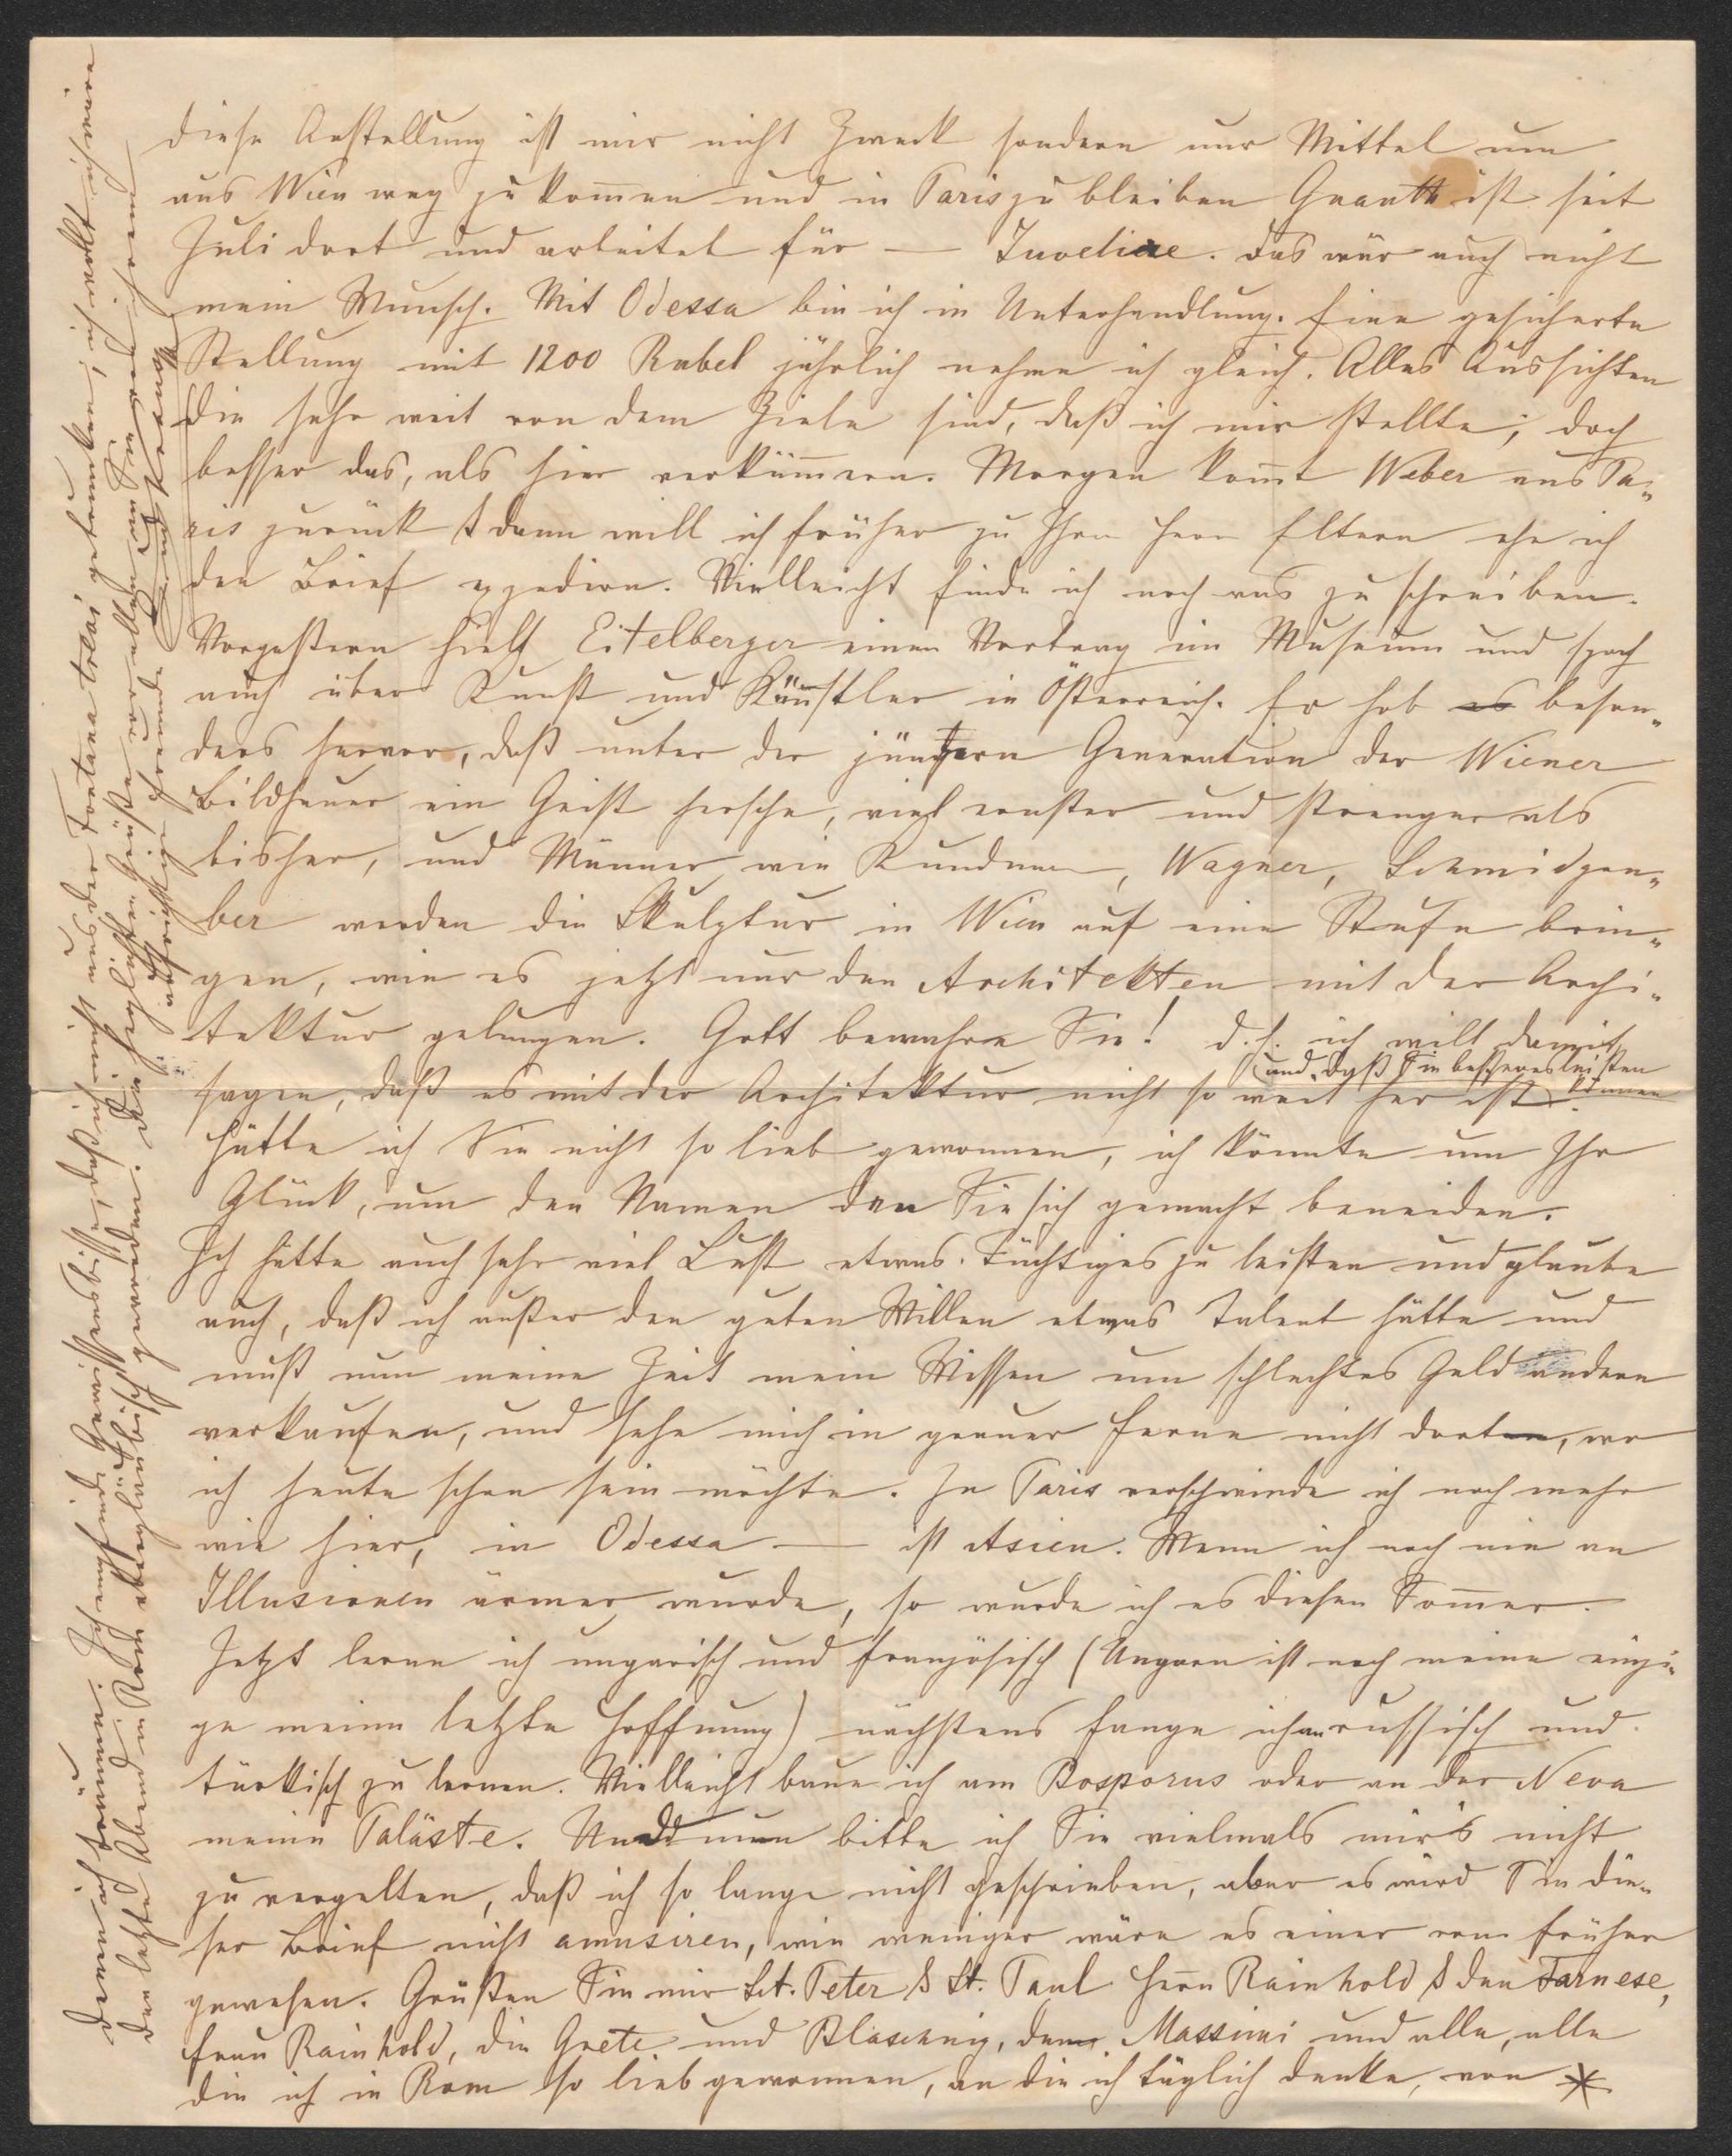 diese Anstellung ist mir nicht Zweck sondern nur Mittel um
aus Wien weg zu kom̄en und in Paris zu bleiben Gnauth ist seit
Juli dort und arbeitet für — Juveliere. Das wär auch nicht
mein Wunsch. Mit Odessa bin ich in Unterhandlung. Eine gesicherte
Stellung mit 1200 Rubel jährlich nehme ich gleich. Alles Aussichten
die sehr weit von dem Ziele sind, daß ich mir stellte, doch
besser das, als hier verküm̄ern. Morgen kom̄t Weber aus Pa„
ris zurück & dann will ich früher zu Ihren Herrn Eltern ehe ich
den Brief expedire. Vielleicht finde ich noch was zu schreiben.
Vorgestern hielt Eitelberger einen Vortrag im Museum und sprach
auch über Kunst und Künstler in Österreich. Er hob es beson„
ders hervor, daß unter der jüngern Generation der Wiener
Bildhauer ein Geist hersche, viel ernster und strenger als
bisher, und Männer wie Kundmann, Wagner, Schmidgru„
ber werden die Skulptur in Wien auf eine Stufe brin„
gen, wie es jetzt nur den Architekten mit der Archi„
tektur gelungen. Gott bewahre Sie! d.h. ich will damit
sagen, daß es mit der Architektur nicht so weit her ist
und daß Sie besseres leisten können.
Hätte ich Sie nicht so lieb gewonnen, ich könnte um Ihr
Glück, um den Namen den Sie sich gemacht beneiden.
Ich hätte auch sehr viel Lust etwas Tüchtiges zu leisten und glaube
auch, daß ich außer den guten Willen etwas Talent hätte und
muß nun meine Zeit mein Wissen um schlechtes Geld andern
verkaufen, und sehe mich in grauer Ferne nicht dorten, wo
ich heute schon sein möchte. In Paris verschwinde ich noch mehr
wie hier, in Odessa — ist Asien. Wenn ich noch nie an
Illusionen ärmer wurde, so wurde ich es diesen Som̄er.
Jetzt lerne ich ungarisch und französisch (Ungarn ist noch meine einzi„
ge meine letzte Hoffnung) nächstens fange ich an russisch und
türkisch zu lernen. Vielleicht baue ich am Bosporus oder an der Neva
meine Paläste. Und nun bitte ich Sie vielmals mir's nicht
zu vergelten, daß ich so lange nicht geschrieben, aber es wird Sie die„
ser Brief nicht amusiren, wie weniger wäre es einer von früher
gewesen. Grüßen Sie mir St. Peter & St. Paul Herrn Rainhold & den Farnese,
Frau Rainhold, die Grete und Blaschnig, dem Massimi und alle, alle
die ich in Rom so lieb gewonnen, an die ich täglich denke, von *
denen ich träume. Ich
und aus der Fontana Trevi getrunken,
der letzte Abend in Rom
Aufrichtiger Freund